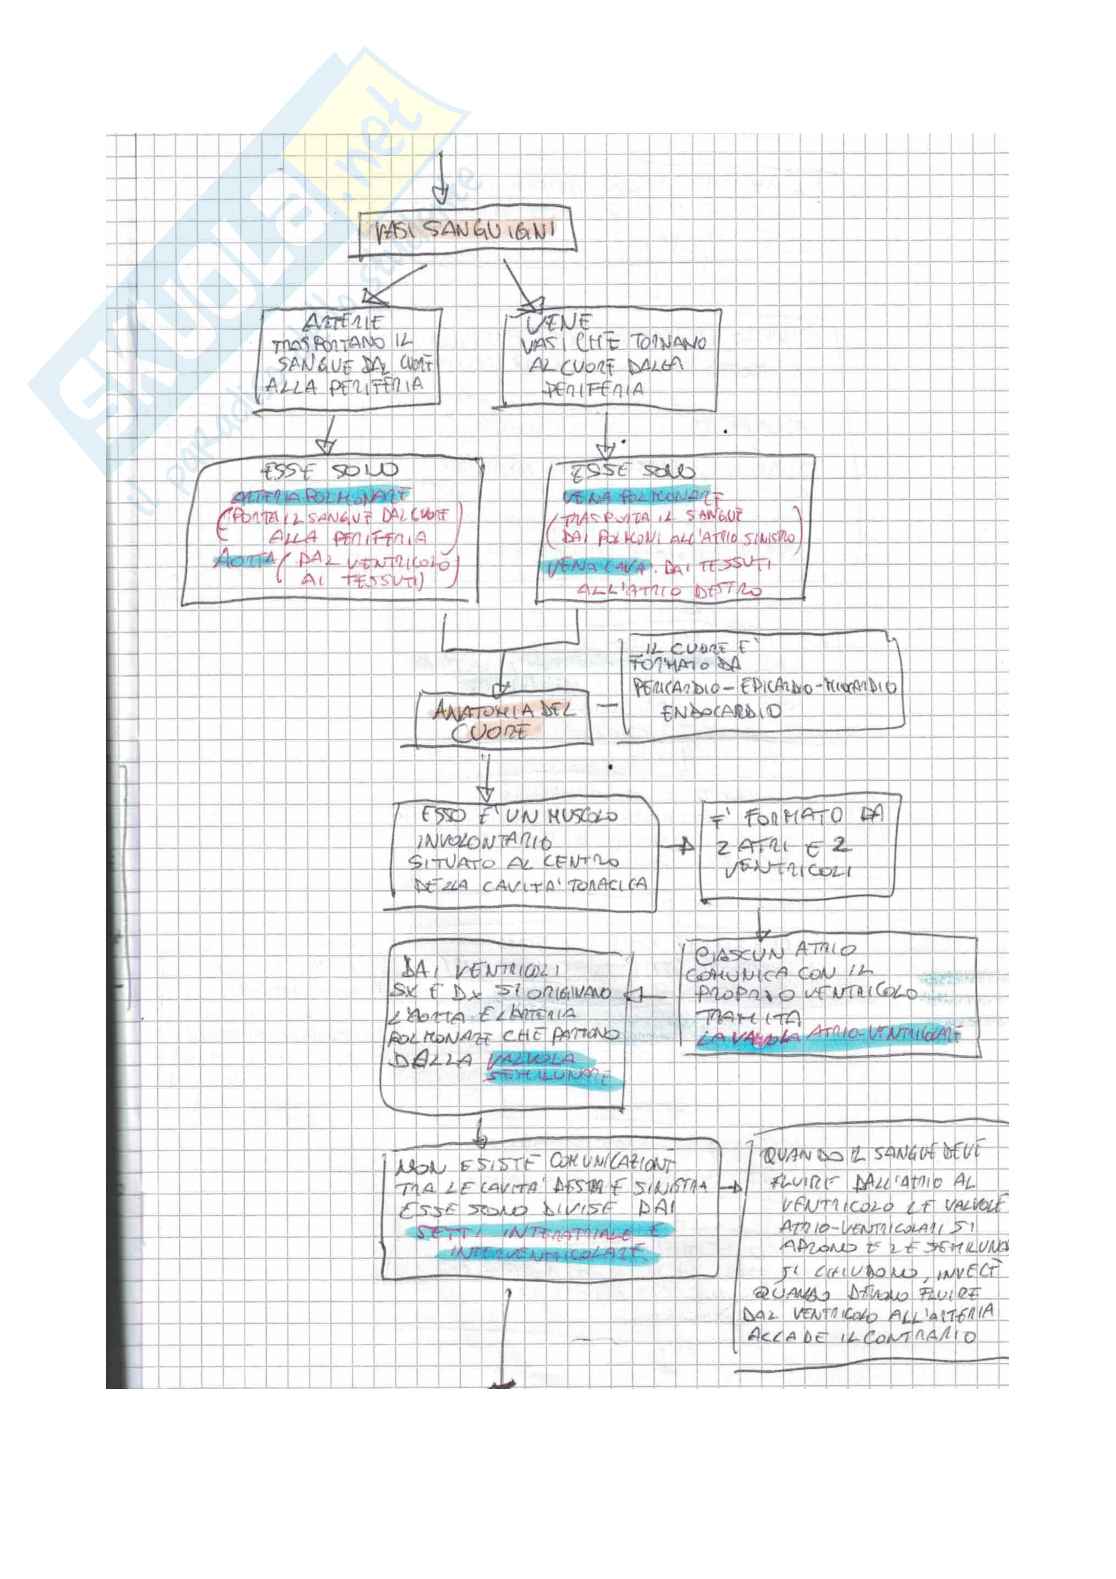 SKUOLA.net
il paradiso dello studente
VASI SANGUIGNI
ARTERIE
TRASPORTANO IL
SANGUE DAL CUORE
ALLA PERIFERIA
VENE
VASI CHE TORNANO
AL CUORE DALLA
PERIFERIA
ESSE SONO
ARTERIA POLMONARE
(PORTA IL SANGUE DAL CUORE
ALLA PERIFERIA)
AORTA (DAL VENTRICOLO
AI TESSUTI)
ESSE SONO
VENA POLMONARE
(TRASPORTA IL SANGUE
DAI POLMONI ALL'ATRIO SINISTRO)
VENA CAVA. DAI TESSUTI
ALL'ATRIO DESTRO
IL CUORE E'
FORMATO DA
PERICARDIO-EPICARDIO-MIOCARDIO
ENDOCARDIO
ANATOMIA DEL
CUORE
ESSO E' UN MUSCOLO
INVOLONTARIO
SITUATO AL CENTRO
DELLA CAVITA' TORACICA
E' FORMATO DA
2 ATRI E 2
VENTRICOLI
CIASCUN ATRIO
COMUNICA CON IL
PROPRIO VENTRICOLO
TRAMITA
LA VALVOLA ATRIO-VENTRICOLARE
DAI VENTRICOLI
SX E DX SI ORIGINANO
L'AORTA E L'ARTERIA
POLMONARE CHE PARTONO
DALLA VALVOLA
SEMILUNARE
NON ESISTE COMUNICAZIONE
TRA LE CAVITA' DESTRA E SINISTRA
ESSE SONO DIVISE DAI
SETTI INTERATRIALE E
INTERVENTRICOLARE
QUANDO IL SANGUE DEVE
FLUIRE DALL'ATRIO AL
VENTRICOLO LE VALVOLE
ATRIO-VENTRICOLARI SI
APRONO E LE SEMILUNA
SI CHIUDONO, INVECE
QUANDO DEVONO FLUIRE
DAL VENTRICOLO ALL'ARTERIA
ACCADE IL CONTRARIO